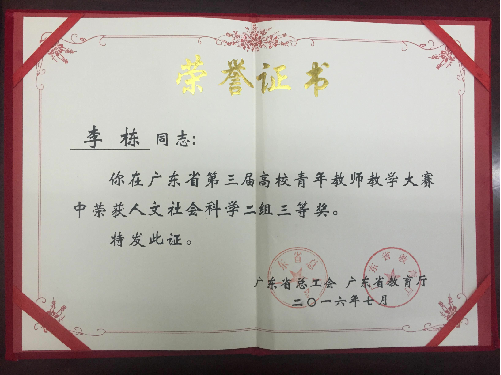 荣誉证书
李栋 同志:
你在广东省第三届高校青年教师教学大赛
中荣获人文社会科学二组三等奖。
特发此证。
广东省总工会 广东省教育厅
二〇一六年七月